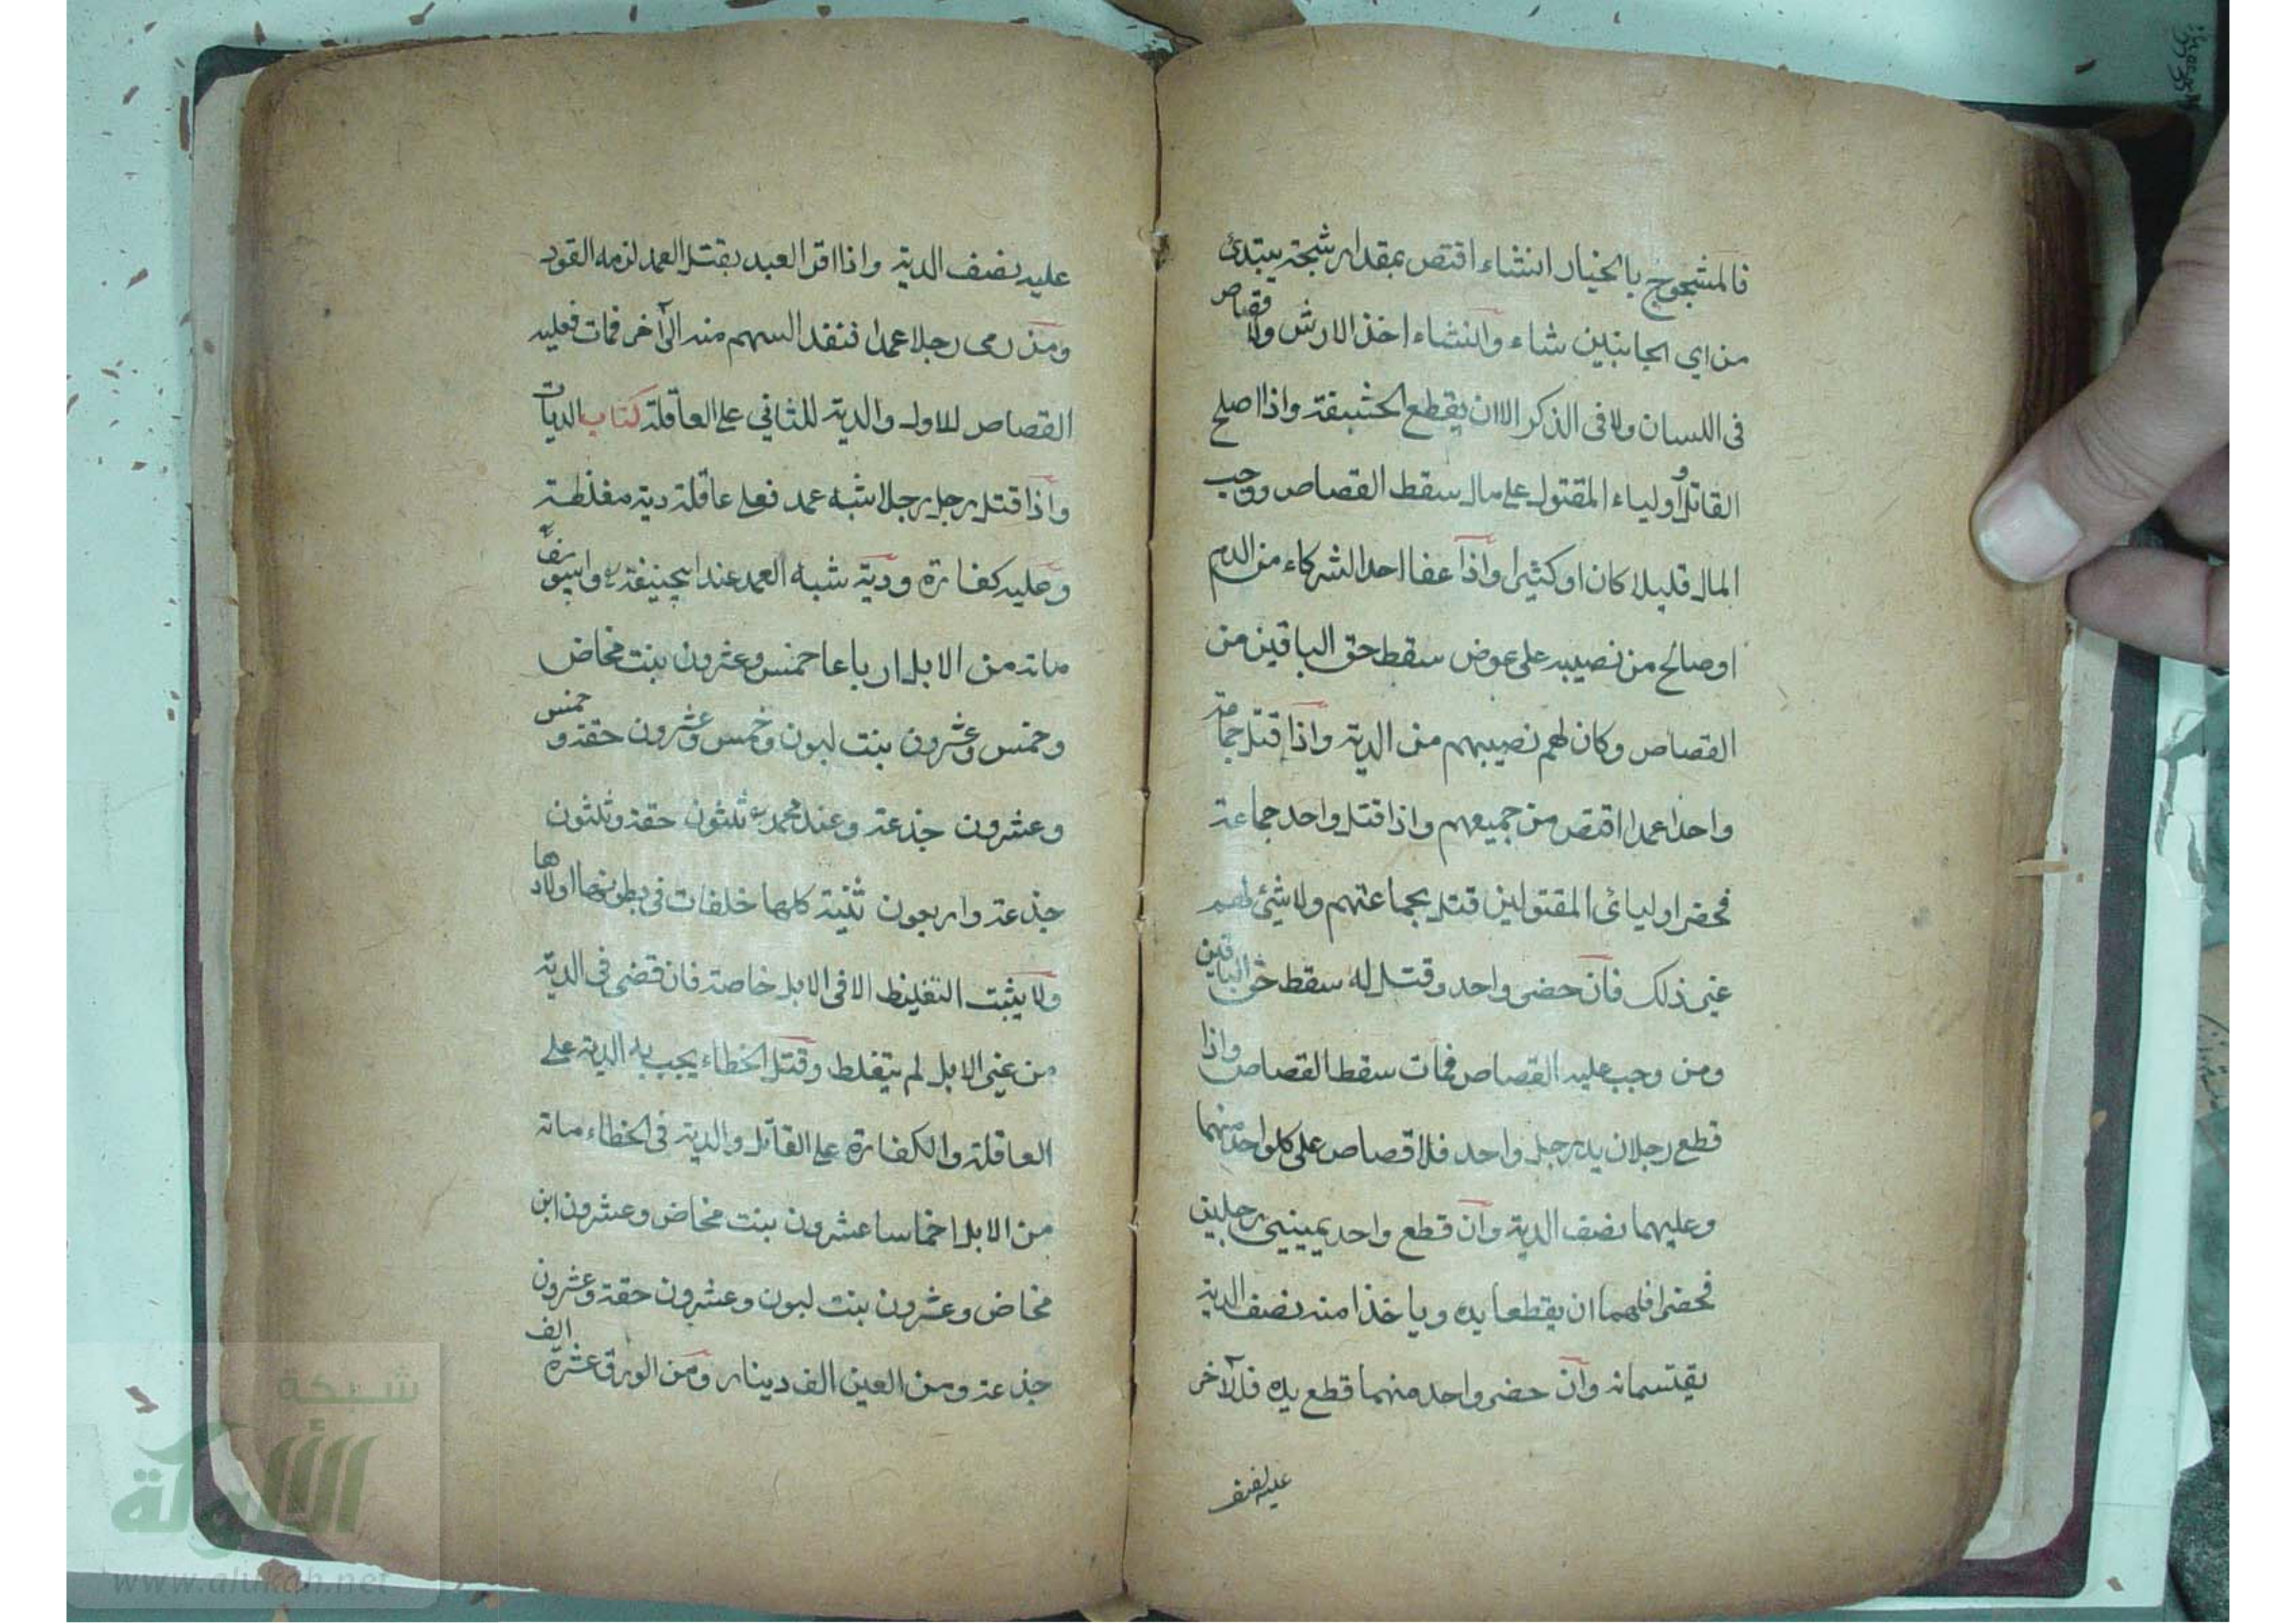 فالمشجوج بالخيار انشاء اقتص بمقدار شجته يبتدئ
من اي الجانبين شاء وانشاء اخذ الارش ولا قصاص
فى اللسان ولا فى الذكر الا ان يقطع الحشيفة واذا اصلح
القاتل و اولياء المقتول على مال سقط القصاص ووجب
المال قليلا كان او كثيرا واذا عفا احد الشركاء من الدم
او صالح من نصيبه على عوض سقط حق الباقين من
القصاص وكان لهم نصيبهم من الدية واذا قتل جماعة
واحدا عمدا اقتص من جميعهم واذا قتل واحد جماعة
فحضر اوليائ المقتولين قتل بجماعتهم ولا شئ لهم
غير ذلك فان حضر واحد وقتل له سقط حق الباقين
ومن وجب عليه القصاص فمات سقط القصاص واذا
قطع رجلان يد رجل واحد فلا قصاص على كلواحد منهما
وعليهما نصف الدية وان قطع واحد يمينى رجلين
فحضرا فلهما ان يقطعا يده وياخذا منه نصف الدية
يقتسمانه وان حضر واحد منهما قطع يده فللآخر
عليه نصف
عليه نصف الدية واذا اقر العبد بقتل العمد لزمه القود
ومن رمى رجلا عمدا فنفد السهم منه الى آخر فمات فعليه
القصاص للاول والدية للثاني على العاقلة كتاب الديات
واذا قتل رجل رجلا شبه عمد فعلى عاقلة دية مغلطة
وعليه كفارة ودية شبه العمد عند ابيحنيفة رح وابييوسف
مائة من الابل ارباعا خمس وعشرون بنت مخاض
وخمس وعشرون بنت لبون وخمس وعشرون حقة وخمس
وعشرون جذعة وعند محمد رح ثلثون حقة وثلثون
جذعة واربعون ثنية كلها خلفات في بطونها اولادها
ولا يثبت التغليظ الا فى الابل خاصة فان قضى فى الدية
من غير الابل لم يتغلظ وقتل الخطاء يجب به الدية على
العاقلة والكفارة على القاتل والدية فى الخطاء مائة
من الابل اخماسا عشرون بنت مخاض وعشرون ابن
مخاض وعشرون بنت لبون وعشرون حقة وعشرون
جذعة ومن العين الف دينار ومن الورق عشرة الف
شبكة
الألوكة
www.alukah.net